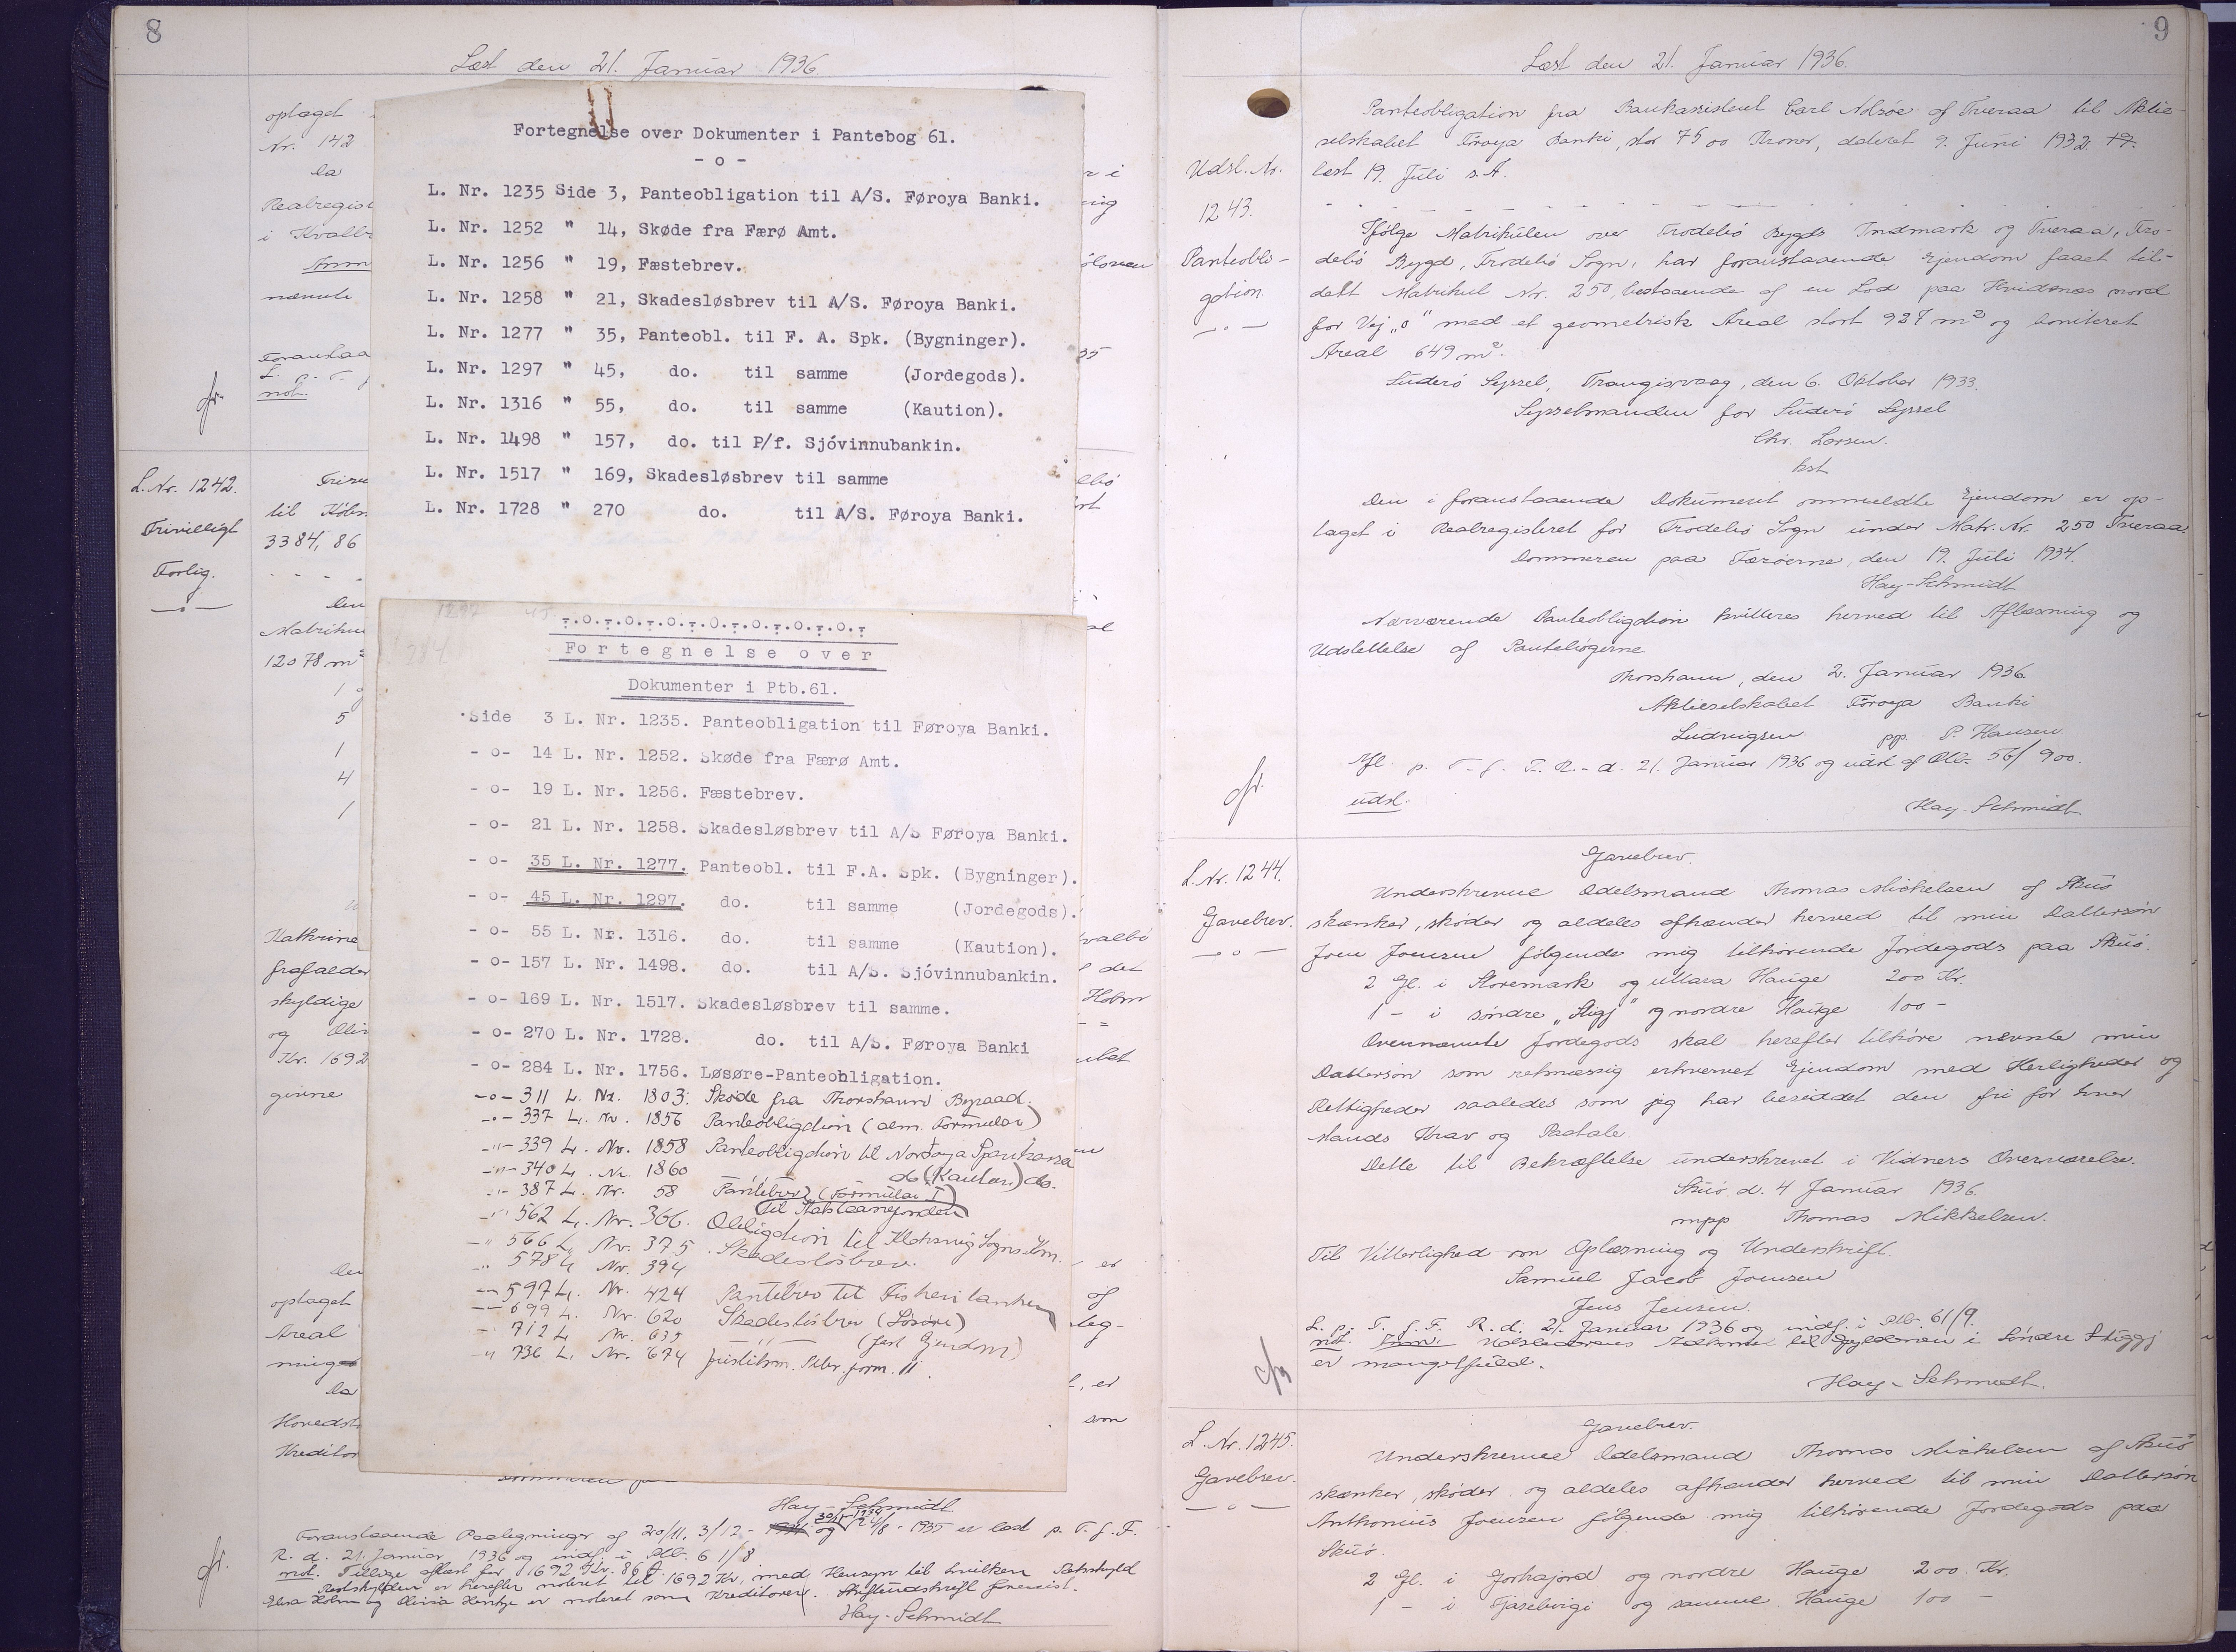 8
Læst den 21. Januar 1936.
optaget
Nr. 142
da
Realregist
i Kvalb
Anm
nævnte
Foranstaa
L. p. T. f
not.
L. Nr. 1242.
Frivilligt
Forlig.
til Købm
3384,86
den
Matriku
12078 m²
1 og
5
1
4
1
Kathrine
frafalder
skyldige
og Oliv
Kr. 1692
givne
den
optaget
Areal
ning
da
Hovedst
Kreditor
Fortegnelse over Dokumenter i Pantebog 61.
- o -
L. Nr. 1235 Side 3, Panteobligation til A/S. Føroya Banki.
L. Nr. 1252 " 14, Skøde fra Færø Amt.
L. Nr. 1256 " 19, Fæstebrev.
L. Nr. 1258 " 21, Skadesløsbrev til A/S. Føroya Banki.
L. Nr. 1277 " 35, Panteobl. til F. A. Spk. (Bygninger).
L. Nr. 1297 " 45, do. til samme (Jordegods).
L. Nr. 1316 " 55, do. til samme (Kaution).
L. Nr. 1498 " 157, do. til P/f. Sjóvinnubankin.
L. Nr. 1517 " 169, Skadesløsbrev til samme
L. Nr. 1728 " 270 do. til A/S. Føroya Banki.
1297 45
284
Fortegnelse over
Dokumenter i Ptb.61.
Side 3 L. Nr. 1235. Panteobligation til Føroya Banki.
- o- 14 L. Nr. 1252. Skøde fra Færø Amt.
- o- 19 L. Nr. 1256. Fæstebrev.
- o- 21 L. Nr. 1258. Skadesløsbrev til A/S Føroya Banki.
- o- 35 L. Nr. 1277. Panteobl. til F.A. Spk. (Bygninger).
- o- 45 L. Nr. 1297. do. til samme (Jordegods).
- o- 55 L. Nr. 1316. do. til samme (Kaution).
- o- 157 L. Nr. 1498. do. til A/S. Sjóvinnubankin.
- o- 169 L. Nr. 1517. Skadesløsbrev til samme.
- o- 270 L. Nr. 1728. do. til A/S. Føroya Banki
- o- 284 L. Nr. 1756. Løsøre-Panteobligation.
-o- 311 L. Nr. 1803. Skøde fra Thorshavns Byraad.
-"- 337 L. Nr. 1856 Panteobligation (alm. Formular)
-"- 339 L. Nr. 1858 Panteobligation til Nordoya Sparikassa
-"- 340 L. Nr. 1860 do (Kaution) do.
-"- 387 L. Nr. 58 Pantebrev (Formular I)
til Statslaanefonden
-"- 562 L. Nr. 366. Obligation til Klaksvig Sogns Kom.
-" 566 L. Nr. 375. Skadesløsbrev.
-" 578 L Nr. 394
-"- 597 L. Nr. 424 Pantebrev til Fiskeribanken
-"- 699 L. Nr. 620 Skadesløsbrev (Løsøre)
-" 712 L Nr. 635 -"- (fast Ejendom)
-" 736 L. Nr. 674 Justitsm. Pbr. form. II.
Hay-Schmidt
Foranstaaende Paategninger af 20/11, 3/12 - og 30/11-1934 2/8 - 1935 er læst p. T. f. F.
R. d. 21. Januar 1936 og indf. i Pb. 61/8
not. Tillige aflæst for 1692 Kr. 86 Ø.
Restskylden er herefter noteret til 1692 Kr., med Hensyn til hvilken Restskyld
Elsa Holm og Olivia Hentze er noteret som Kreditorer. Skifteudskrift forevist.
Hay-Schmidt
9
Læst den 21. Januar 1936.
Udsl. Nr.
1243.
Panteobli-
gation.
— " —
Panteobligation fra Bankassistent Carl Nolsøe af Tveraa til Aktie-
selskabet Föroya Banki, stor 7500 Kroner, dateret 9. Juni 1932
læst 19. Juli s.A.
Ifølge Matrikulen over Frodebö Bygds Indmark og Tveraa, Fro-
debö Bygd, Frodebö Sogn, har foranstaaende Ejendom faaet til-
delt Matrikul Nr. 250, bestaaende af en Lod paa Hvidenæs nord
for Vej „o" med et geometrisk Areal stort 927 m² og boniteret
Areal 649 m².
Suderö Syssel, Trangisvaag, den 6. Oktober 1933.
Sysselmanden for Suderö Syssel
Chr. Larsen.
kst
Den i foranstaaende Dokument ommeldte Ejendom er op-
taget i Realregisteret for Frodebö Sogn under Matr. Nr. 250 Tveraa.
Dommeren paa Færöerne, den 19. Juli 1934.
Hay-Schmidt
Nærværende Panteobligation kvitteres herved til Aflæsning og
Udslettelse af Pantebøgerne
Thorshavn, den 2. Januar 1936
Aktieselskabet Föroya Banki
Ludvigsen pp. P. Hansen
Afl. p. T. f. F. R. d. 21. Januar 1936 og udsl. af Pb. 56/900.
udsl.
Hay-Schmidt
L. Nr. 1244.
Gavebrev.
— " —
Gavebrev.
Underskrevne Odelsmand Thomas Mickelsen af Skuö
skænker, skøder og aldeles afhænder herved til min Dattersøn
Joen Joensen følgende mig tilhørende Jordegods paa Skuö.
2 Gl. i Storemark og uttara Hauge 200 Kr.
1 - i søndre „Stigj" og nordre Hauge 100 -
Ovennævnte Jordegods skal herefter tilhøre nævnte min
Dattersøn som retmæssig erhvervet Ejendom med Herligheder og
Rettigheder saaledes som jeg har besiddet den fri for hver
Mands Krav og Paatale.
Dette til Bekræftelse underskrevet i Vidners Overværelse.
Skuö, d. 4 Januar 1936.
mpp Thomas Mikkelsen.
Til Vitterlighed om Oplæsning og Underskrift.
Samuel Jacob Joensen
Jens Jensen.
L. p. T. f. F. R. d. 21. Januar 1936 og indf. i Pb. 61/9.
not. Anm. Udstederens Adkomst til Gyldenen i Söndre Stiggj
er mangelfuld.
Hay-Schmidt.
L. Nr. 1245.
Gavebrev.
— " —
Gavebrev.
Underskrevne Odelsmand Thomas Mickelsen af Skuö
skænker, skøder og aldeles afhænder herved til min Dattersøn
Anthonius Joensen følgende mig tilhørende Jordegods paa
Skuö.
2 Gl. i Gorhajord og nordre Hauge 200 Kr.
1 - i og samme Hauge 100 -